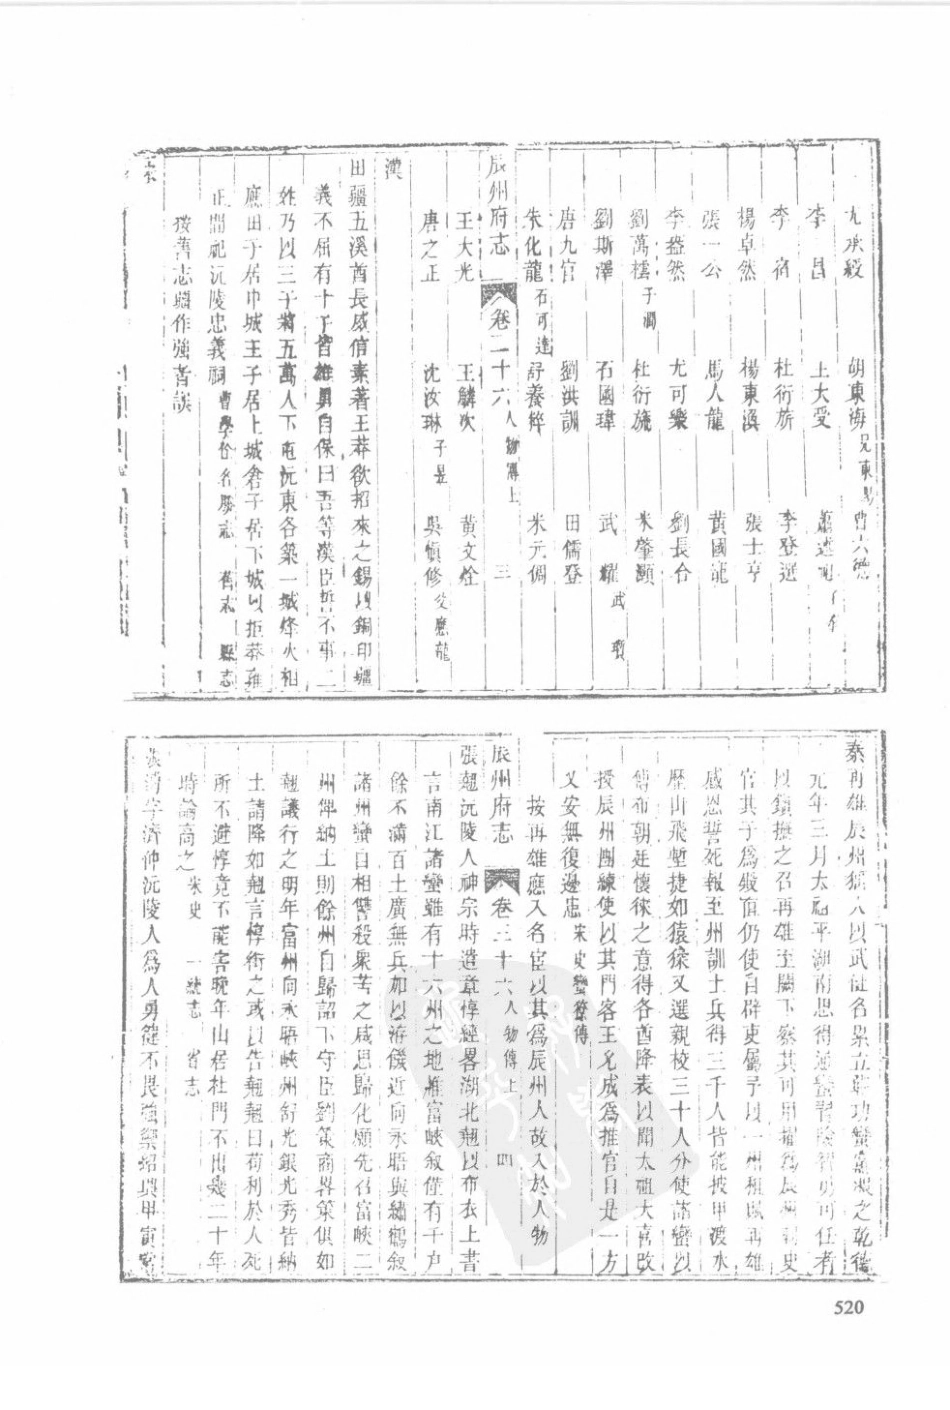 尤承緞 胡東海 兄東昜 曹大德
李昌 上大受 蕭
李宿 杜衍旂 李登選
楊卓然 楊東漁 張士亨
張一公 馬人龍 黃國龍
李盛然 尤可樂 劉長台
劉萬檽 子潤 杜衍旒 米肇灝
劉斯澤 石國瑋 武耀 武瓊
唐九官 劉洪訓 田儒登
朱化龍 石可達 舒養粹 米元倜
辰州府志 卷二十六 人物傳上 三
王大光 王麟次 黃文烇
唐之正 沈汝琳 子昱 吳愼修 父應龍
漢
田疆五溪酋長威信素著王莽欲招來之錫以銅印疆
義不屈有十子皆雄勇自保曰吾等漢臣誓不事二
姓乃以三子將五萬人下屯沅東各築一城烽火相
應田子居中城王子居上城倉子居下城以拒莽雍
正間祀沅陵忠義祠 曹學佺名勝志 舊志 縣志
按舊志疆作強者誤
宋
秦再雄辰州猺人以武健名累立戰功蠻黨服之乾德
元年三月太祖平湖南思得通蠻習險智勇可任者
以鎮撫之召再雄至闕下察其可用擢爲辰州刺史
官其子爲殿直仍使自辟吏屬予以一州租賦再雄
感恩誓死報至州訓土兵得三千人皆能披甲渡水
歷山飛塹捷如猿猱又選親校三十人分使諸蠻以
傳布朝廷懷徠之意得各酋降表以聞太祖大喜改
授辰州團練使以其門客王允成爲推官自是一方
乂安無復邊患 宋史蠻獠傳
按再雄應入名宦以其爲辰州人故入於人物
辰州府志 卷二十六 人物傳上 四
張翹沅陵人神宗時遣章惇經畧湖北翹以布衣上書
言南江諸蠻雖有十六州之地惟富峽敘僅有千戶
餘不滿百土廣無兵加以洊饑近向永晤與繡鶴敘
諸州蠻自相讐殺衆苦之咸思歸化願先召富峽二
州俾納土則餘州自歸詔下守臣劉策商畧策俱如
翹議行之明年富州向永晤峽州舒光銀光秀皆納
土請降如翹言惇銜之或以告翹翹曰苟利於人死
所不避惇竟不能害晚年山居杜門不出幾二十年
時論高之 宋史 一統志 省志
字濟仲沅陵人爲人勇健不畏強禦紹興甲寅
520